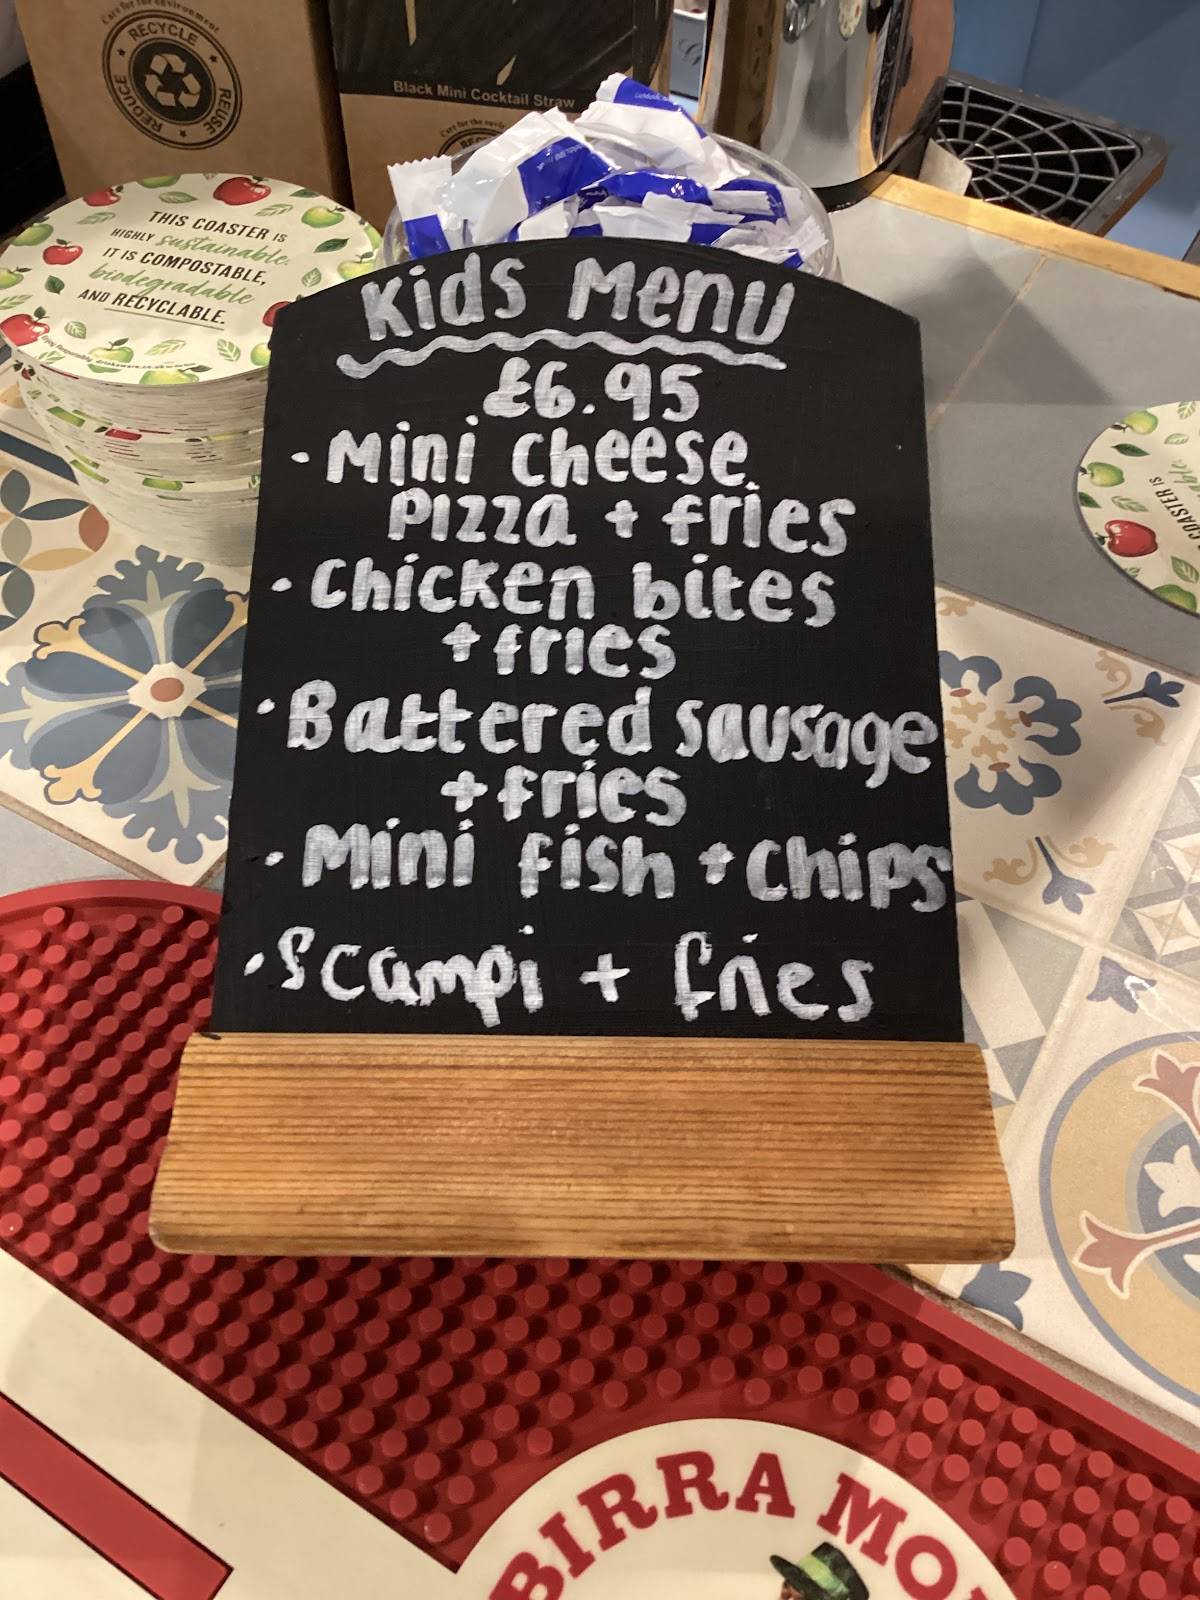 Care for the environment
RECYCLE
REDUCE
REUSE
Black Mini Cocktail Straw
Care for the environment
THIS COASTER IS
HIGHLY sustainable.
IT IS COMPOSTABLE,
biodegradable
AND RECYCLABLE.
Kids Menu
£6.95
• Mini Cheese
Pizza + fries
• Chicken bites
+ fries
• Battered sausage
+ fries
• Mini fish + chips
• Scampi + fries
COASTER IS
BIRRA MO